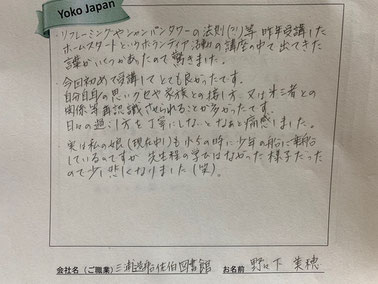 Yoko Japan
・リフレーミングやシャンパンタワーの法則(?!)等 昨年受講した
ホームスタートというボランティア活動の講座の中で出てきた
言葉がいくつかあったので驚きました。
・今回初めて受講してとても良かったです。
自分自身の思いグセや家族との接し方、又は第三者との
関係等再認識させられることが多かったです。
日々の過ごし方を丁寧にしないとなぁと痛感しました。
実は私の娘(現在中1)も小5の時に少年の船に乗船
しているのですが 先生程の学びはなかった様子だった
ので少し悲しくなりました(笑)。
会社名(ご職業) 三浦造船佐伯図書館 お名前 野々下 美穂